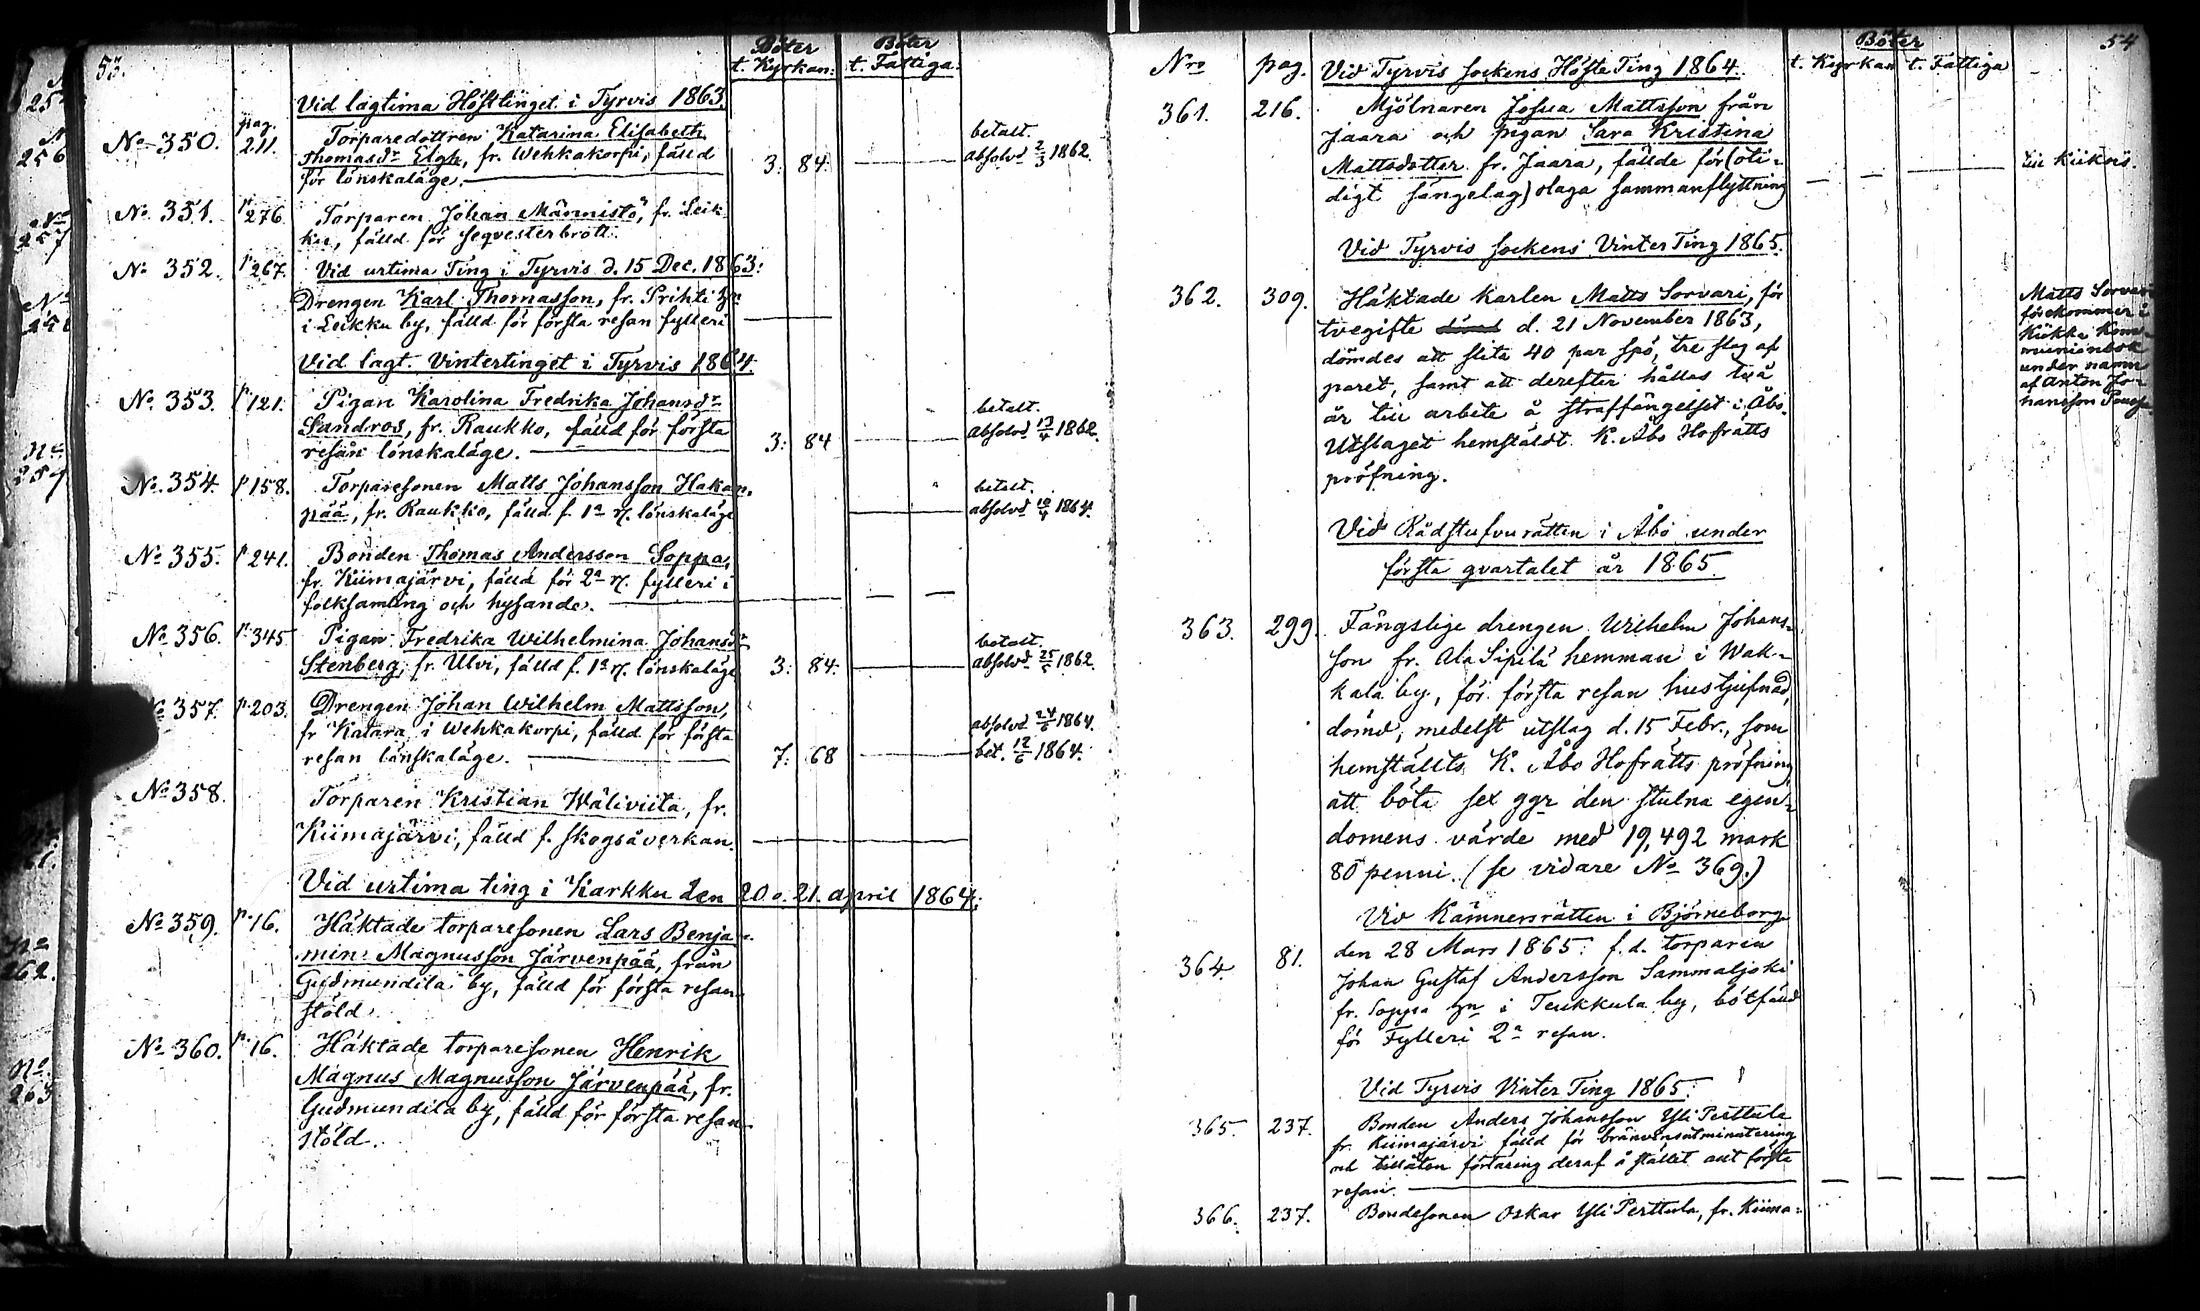 53.
Böter
t. Kyrkan:
Böter
t. Fattiga:
Vid lagtima Hösttinget i Tyrvis 1863.
No 350.
pag.
211.
Torparedottren Katarina Elisabeth
Thomasdr Elgh, fr. Wehkakorpi, fälld
för lönskaläge.
3: 84.
betalt.
absolvd 2/3 1862.
No 351.
p 276.
Torparen Johan Männistö, fr. Leik
ku, fälld för seqvesterbrott.
No 352.
p 267.
Vid urtima Ting i Tyrvis d. 15 Dec. 1863:
Drengen Karl Thomasson, fr. Prihti hn
i Leikku by, fälld för första resan fylleri
Vid lagt. Vintertinget i Tyrvis 1864.
No 353.
p 121.
Pigan Karolina Fredrika Johansdr
Sandros, fr. Raukko, fälld för första
resan lönskaläge.
3: 84
betalt.
absolvd 13/4 1862.
No 354.
p 158.
Torparesonen Matts Johansson Hakan,
pää, fr. Raukko, fälld f. 1a r. lönskaläge
betalt.
absolvd 10/4 1864.
No 355.
p 241.
Bonden Thomas Andersson Soppa,
fr. Kiimajärvi, fälld för 2a r. fylleri i
folksamling och hysande.
No 356.
p. 345
Pigan Fredrika Wilhelmina Johansdr
Stenberg, fr. Ulvi, fälld f. 1a r. lönskaläge
3: 84.
betalt.
absolvd 25/5 1862.
No 357.
p. 203.
Drengen Johan Wilhelm Mattsson,
fr Katara i Wehkakorpi, fälld för första
resan lönskaläge.
7: 68
absolvd 24/6 1864.
bet. 12/6 1864.
No 358.
Torparen Kristian Wäliviita, fr.
Kiimajärvi, fälld f. skogsåverkan.
Vid urtima ting i Karkku den 20 o. 21. april 1864:
No 359.
p. 16.
Häktade torparesonen Lars Benja
min Magnusson Järvenpää, från
Gudmundila by, fälld för första resan
stöld.
No 360.
p. 16.
Häktade torparesonen Henrik
Magnus Magnusson Järvenpää, fr.
Gudmundila by, fälld för första resan
stöld.
54
Nro
pag.
Vid Tyrvis sockens Höste Ting 1864.
Böter
t. Kyrkan t. Fattiga
361.
216.
Mjölnaren Josua Mattsson från
Jaara och pigan Sara Kristina
Mattsdotter fr. Jaara, fälde för (oti-
digt sängelag) olaga sammanflyttning
till Kiikois.
Vid Tyrvis sockens Vinter Ting 1865.
362.
309.
Häktade karlen Matts Sorvari, för
tvegifte dömd d. 21 November 1863,
dömdes att slita 40 par spö, tre slag af
paret, samt att derefter hållas två
år till arbete å straffängelset i Åbo.
Utslaget hemstäldt K. Åbo Hofrätts
pröfning.
Matts Sorvari
förekommer i
Kiikka Kom-
munionbok
under namn
af Anton Jo-
hansson
Vid Rådstufvurätten i Åbo under
första qvartalet år 1865.
363.
299.
Fångslige drengen Wilhelm Johans-
son fr. Ala Sipilä hemman i Wak-
kala by, för första resan hustjufnad,
dömd, medelst utslag d. 15 Febr., som
hemställts K. Åbo Hofrätts pröfning,
att böta sex ggr den stulna egen-
domens värde med 19,492 mark
80 penni. (se vidare No 369.)
Vid Kämnersrätten i Björneborg
364.
81.
den 28 Mars 1865: f.d. torparen
Johan Gustaf Andersson Sammaljoki
fr. Soppa hn i Teukkula by, bötfälld
för Fylleri 2a resan.
Vid Tyrvis Vinter Ting 1865:
365.
237.
Bonden Anders Johansson Yli Perttula
fr. Kiimajärvi fälld för bränvinsutminutering
och tillåten förtäring deraf å stället allt första
resan.
366.
237.
Bondesonen Oskar Yli Perttula, fr. Kiima-